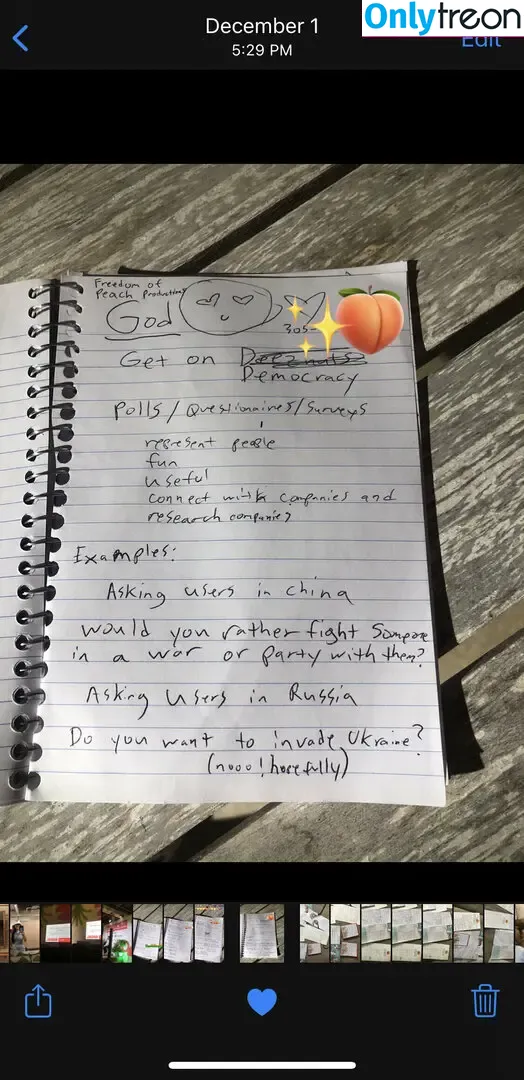 December 1
5:29 PM
Onlytreon
Edit
Freedom of
Peach Productions
God
305-
Get on Deeznats
Democracy
Polls / Questionaires / Surveys
represent people
fun
useful
connect with companies and
research companies
Examples:
Asking users in china
would you rather fight someone
in a war or party with them?
Asking users in Russia
Do you want to invade Ukraine?
(nooo! hopefully)